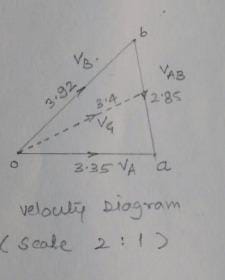 b
V_B.
3.92
V_AB
2.85
3.4
V_G
o
3.35 V_A
a
velocity Diagram
(scale 2:1)